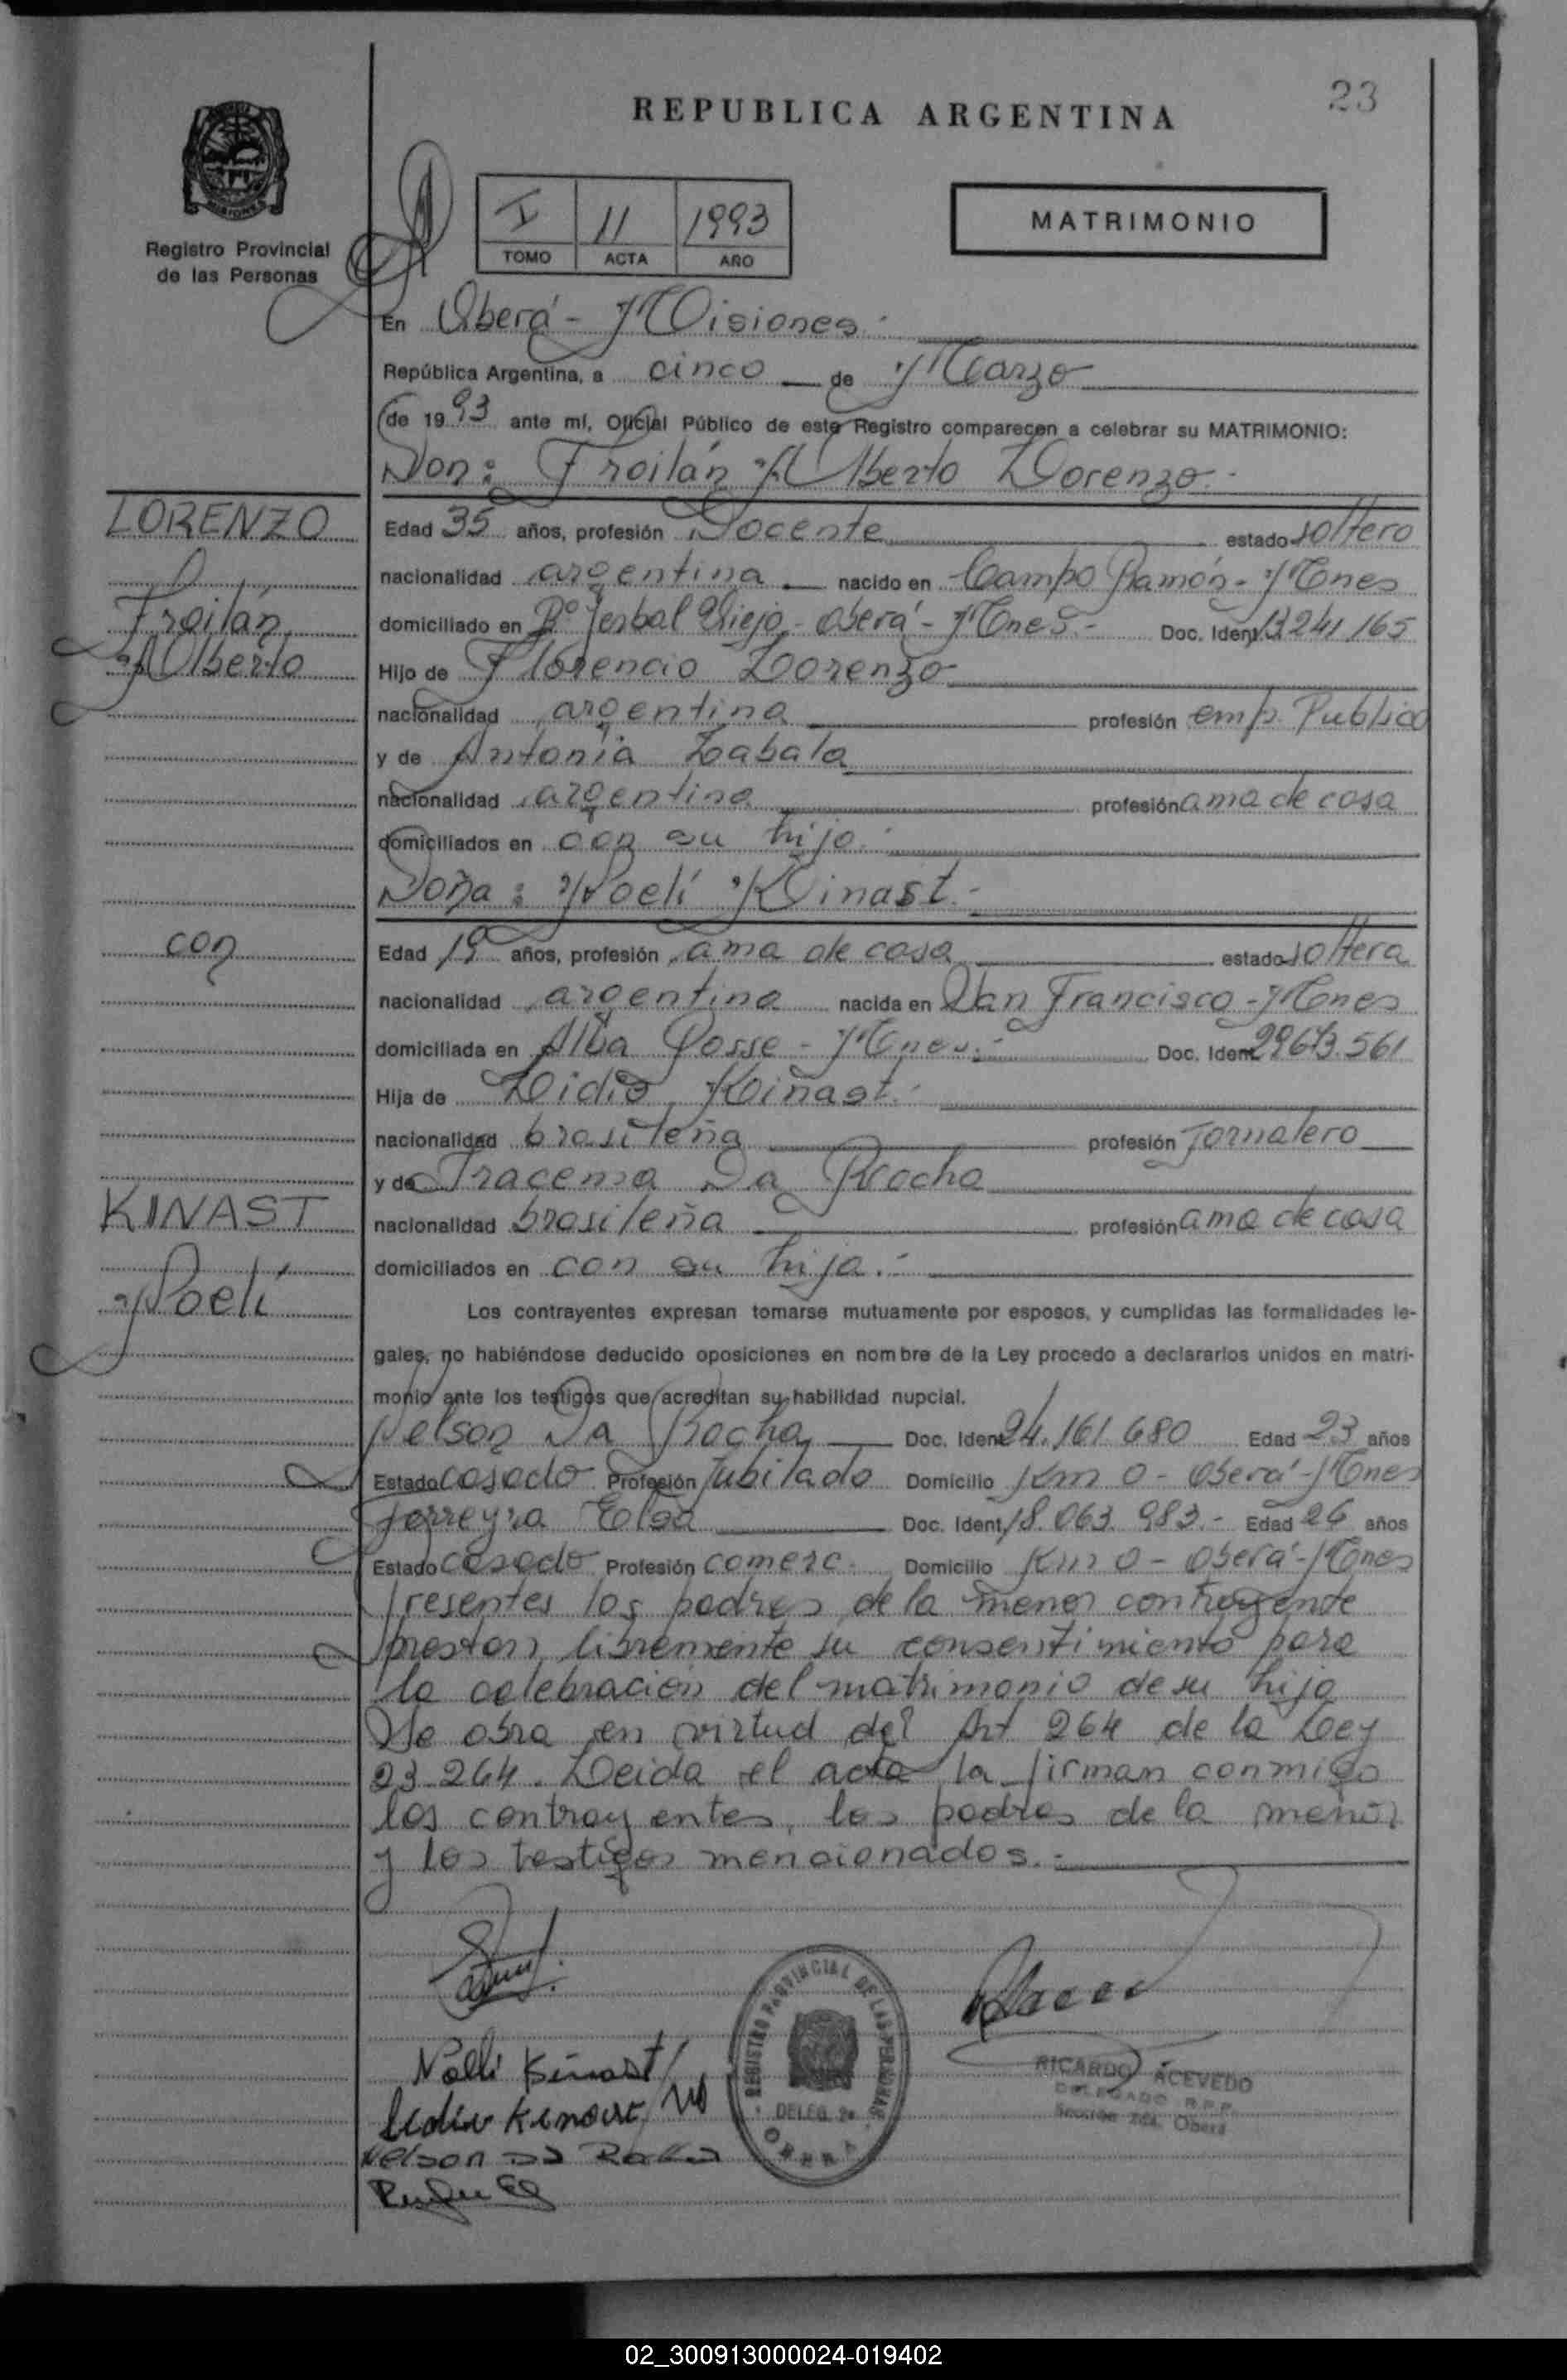 23
REPUBLICA ARGENTINA
Registro Provincial
de las Personas
I 11 1993
TOMO ACTA AÑO
MATRIMONIO
En Oberá - Misiones.-
República Argentina, a cinco de Marzo
de 1993 ante mí, Oficial Público de este Registro comparecen a celebrar su MATRIMONIO:
Don: Froilán Alberto Lorenzo.-
LORENZO
Froilán
Alberto
Edad 35 años, profesión Docente estado soltero
nacionalidad argentina nacido en Campo Ramón - Mnes
domiciliado en Bº Yerbal Viejo - Oberá - Mnes.- Doc. Ident. 13241165
Hijo de Florencio Lorenzo
nacionalidad argentina profesión emp. Publico
y de Antonia Zabala
nacionalidad argentina profesión ama de casa
domiciliados en con su hijo.-
Doña: Noelí Kinast.-
con
Edad 19 años, profesión ama de casa estado soltera
nacionalidad argentina nacida en San Francisco - Mnes
domiciliada en Alba Posse - Mnes.- Doc. Ident. 29673.561
Hija de Lidio Kinast.-
nacionalidad brasileña profesión Jornalero
y de Iracema Da Rocha
KINAST
Noelí
nacionalidad brasileña profesión ama de casa
domiciliados en con su hija.-
Los contrayentes expresan tomarse mutuamente por esposos, y cumplidas las formalidades le-
gales, no habiéndose deducido oposiciones en nombre de la Ley procedo a declararlos unidos en matri-
monio ante los testigos que acreditan su habilidad nupcial.
Nelson Da Rocha Doc. Ident. 24.161.680 Edad 23 años
Estado casado Profesión Jubilado Domicilio Km 0 - Oberá - Mnes
Ferreyra Elsa Doc. Ident. 18.063.983.- Edad 26 años
Estado casado Profesión comerc. Domicilio Km 0 - Oberá - Mnes
Presentes los padres de la menor contrayente
prestan libremente su consentimiento para
la celebracion del matrimonio de su hija
Se obra en virtud del Art 264 de la Ley
23.264. Leida el acta la firman conmigo
los contrayentes, los padres de la menor
y los testigos mencionados.-
REGISTRO PROVINCIAL DE LAS PERSONAS
DELEG. 2a
OBERA
RICARDO ACEVEDO
DELEGADO R.P.P.
Sección 2da. Oberá
Noelí Kinast
Lidio Kinast
Nelson Da Rocha
02_300913000024-019402